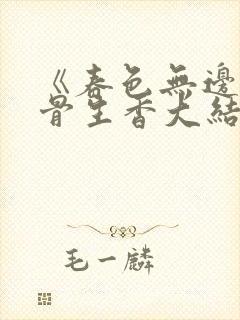 《春色無邊
骨生香大結
毛一麟